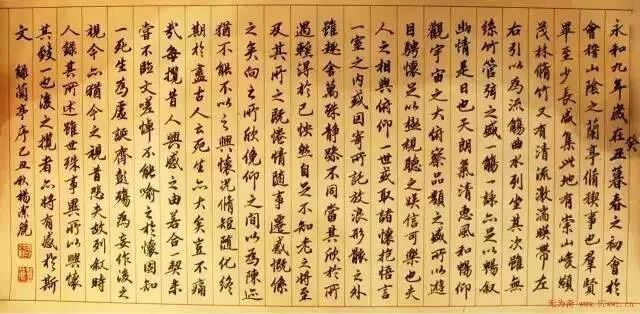 永和九年歲在癸丑暮春之初會於
會稽山陰之蘭亭脩稧事也群賢
畢至少長咸集此地有崇山峻領
茂林脩竹又有清流激湍暎帶左
右引以為流觴曲水列坐其次雖無
絲竹管弦之盛一觴一詠亦足以暢敘
幽情是日也天朗氣清惠風和暢仰
觀宇宙之大俯察品類之盛所以遊
目騁懷足以極視聽之娛信可樂也夫
人之相與俯仰一世或取諸懷抱悟言
一室之內或因寄所託放浪形骸之外
雖趣舍萬殊靜躁不同當其欣於所
遇蹔得於己怏然自足不知老之將至
及其所之既惓情隨事遷感慨係
之矣向之所欣俛仰之間以為陳迹
猶不能不以之興懷況脩短隨化終
期於盡古人云死生亦大矣豈不痛
哉每攬昔人興感之由若合一契未
嘗不臨文嗟悼不能喻之於懷固知
一死生為虛誕齊彭殤為妄作後之
視今亦猶今之視昔悲夫故列敘時
人錄其所述雖世殊事異所以興懷
其致一也後之攬者亦將有感於斯
文 錄蘭亭序己丑秋楊